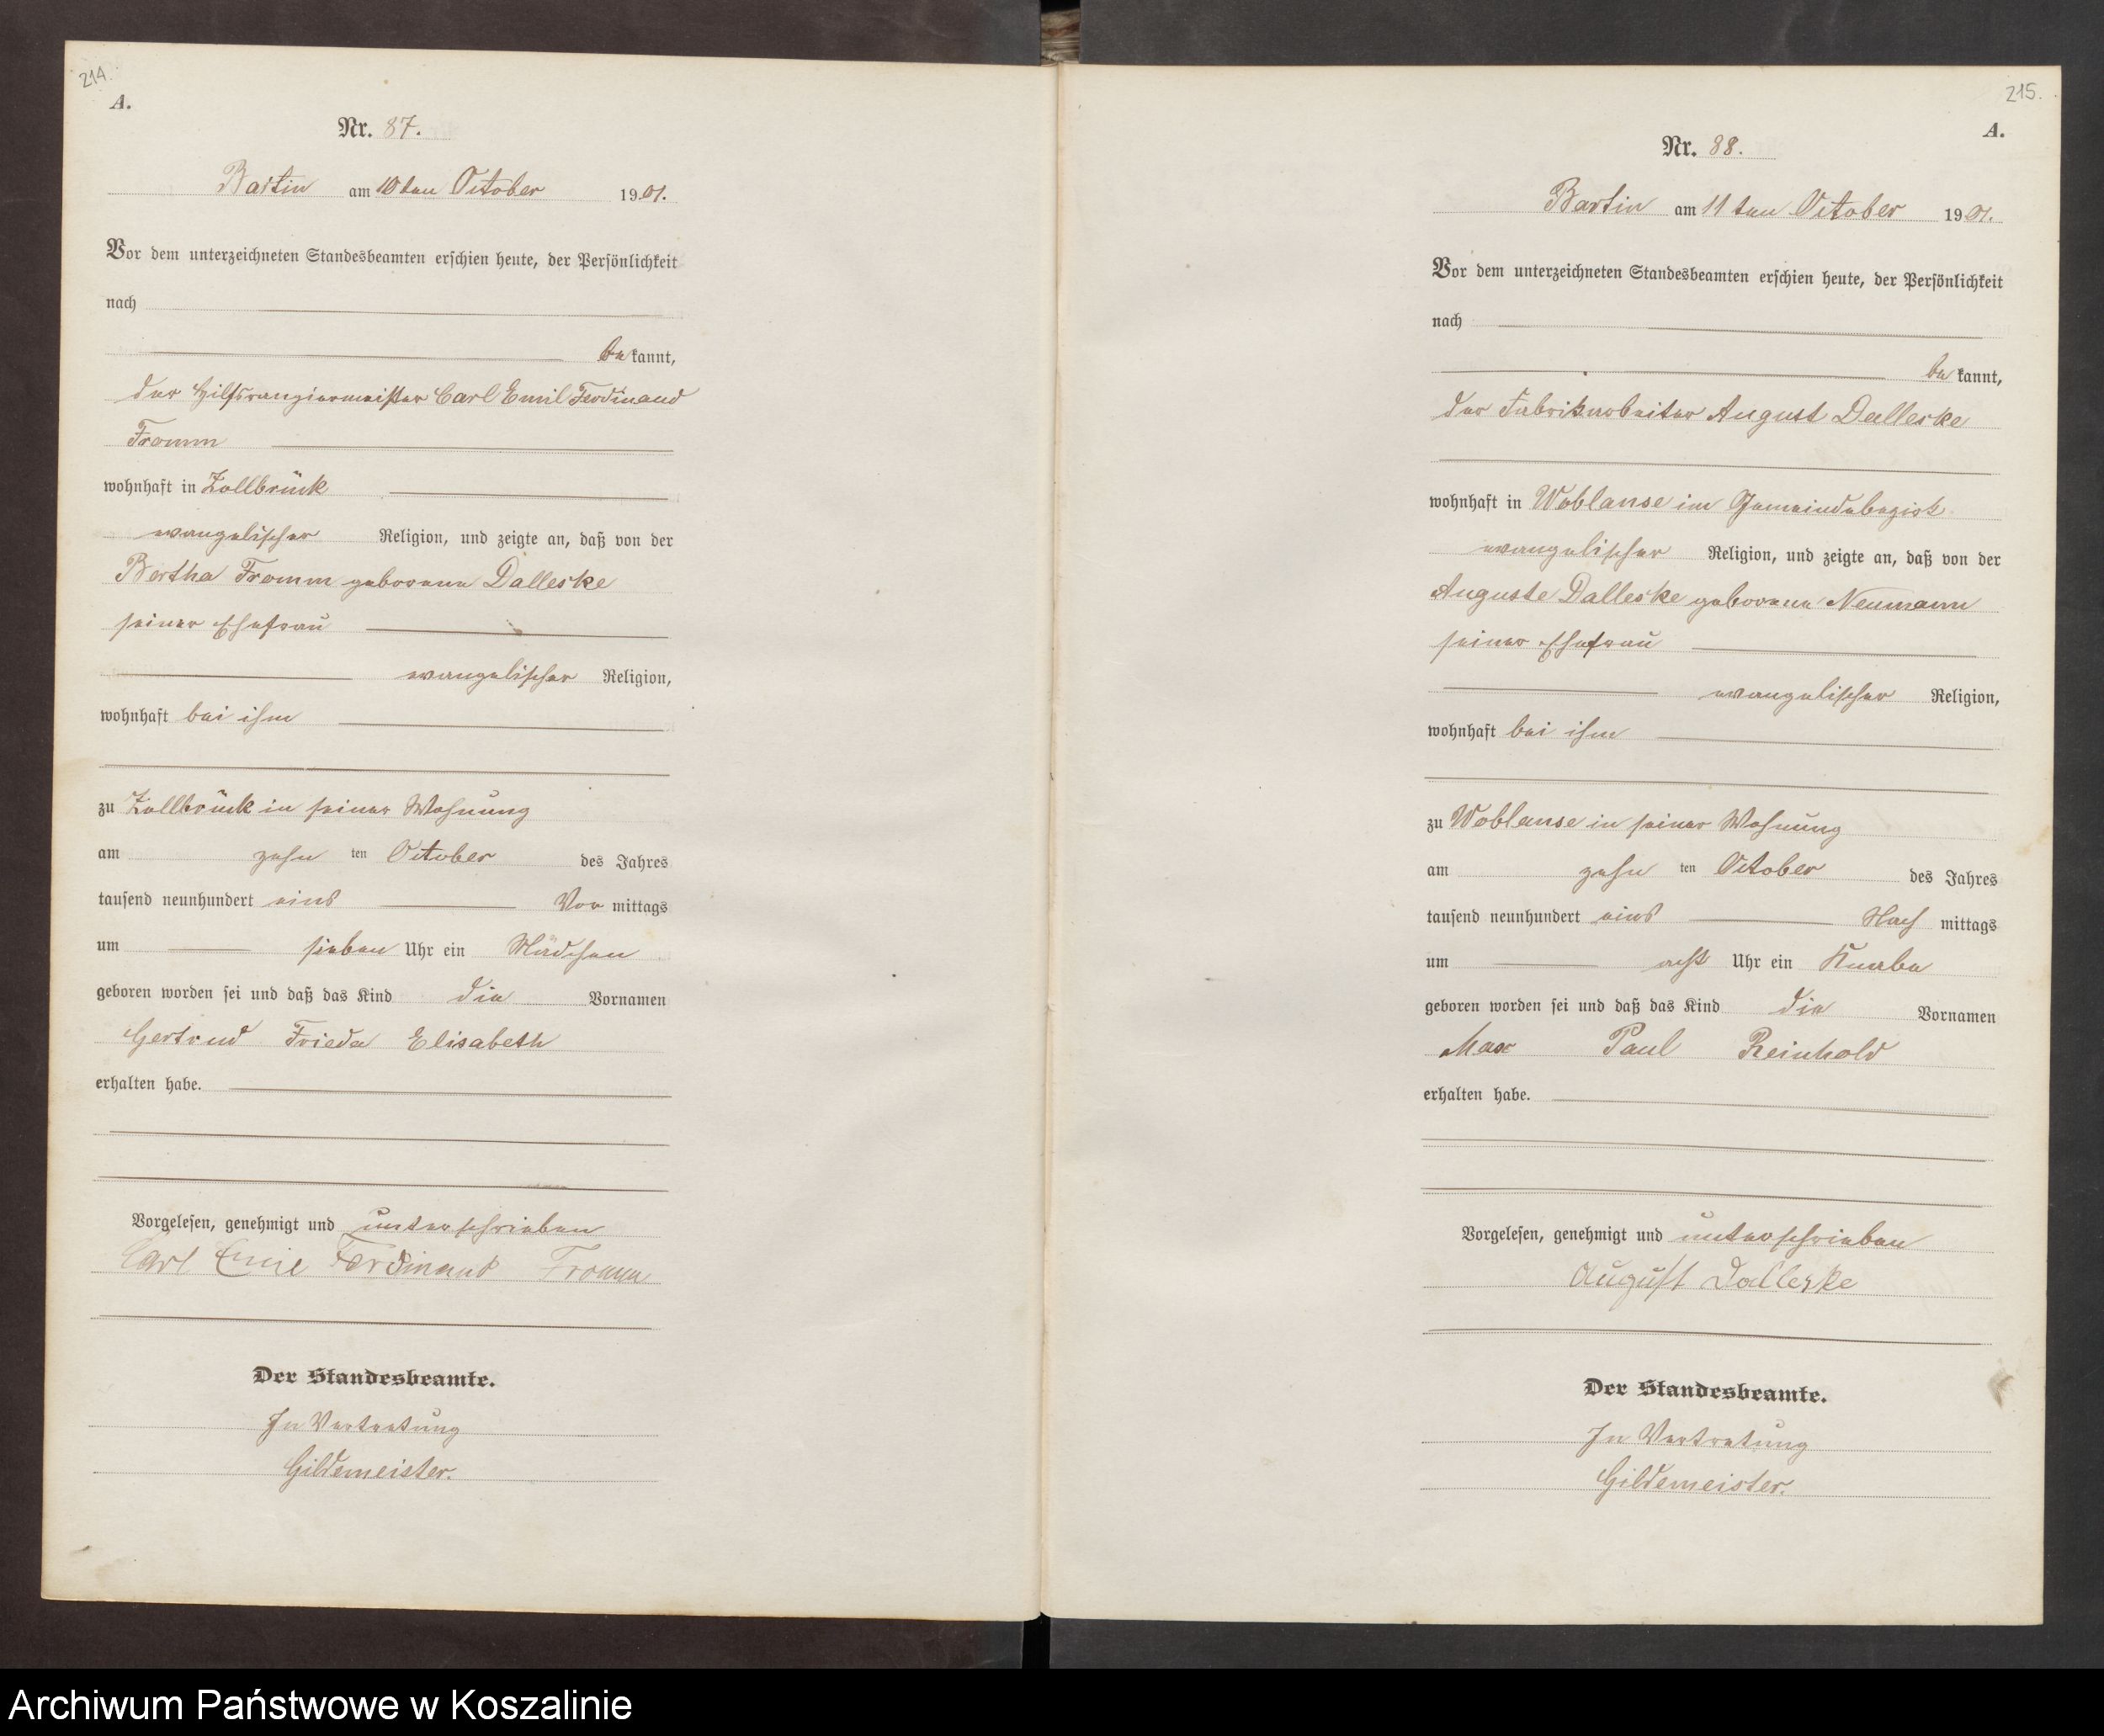 214.
A.
Nr. 87.
Bartin am 10ten October 1901.
Vor dem unterzeichneten Standesbeamten erschien heute, der Persönlichkeit
nach
bekannt,
der Hilfsrangiermeister Carl Emil Ferdinand
Fromm
wohnhaft in Zollbrück
evangelischer Religion, und zeigte an, daß von der
Bertha Fromm geborene Dalleske
seiner Ehefrau
evangelischer Religion,
wohnhaft bei ihm
zu Zollbrück in seiner Wohnung
am zehn ten October des Jahres
tausend neunhundert eins Vor mittags
um sieben Uhr ein Mädchen
geboren worden sei und daß das Kind die Vornamen
Gertrud Frieda Elisabeth
erhalten habe.
Vorgelesen, genehmigt und unterschrieben
Carl Emil Ferdinand Fromm
Der Standesbeamte.
In Vertretung
Gildemeister.
215.
A.
Nr. 88.
Bartin am 11ten October 1901.
Vor dem unterzeichneten Standesbeamten erschien heute, der Persönlichkeit
nach
bekannt,
der Fabrikarbeiter August Dalleske
wohnhaft in Woblanse im Gemeindebezirk
evangelischer Religion, und zeigte an, daß von der
Auguste Dalleske geborene Neumann
seiner Ehefrau
evangelischer Religion,
wohnhaft bei ihm
zu Woblanse in seiner Wohnung
am zehn ten October des Jahres
tausend neunhundert eins Nach mittags
um acht Uhr ein Knabe
geboren worden sei und daß das Kind die Vornamen
Max Paul Reinhold
erhalten habe.
Vorgelesen, genehmigt und unterschrieben
August Dalleske
Der Standesbeamte.
In Vertretung
Gildemeister.
Archiwum Państwowe w Koszalinie